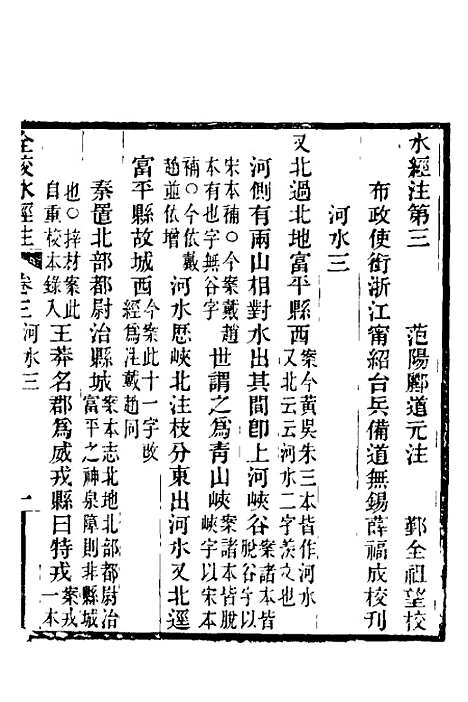 水經注第三　范陽酈道元注　鄞全祖望校
布政使銜浙江甯紹台兵備道無錫薛福成校刊
河水三
又北過北地富平縣西案今黃吳朱三本皆作河水又北云云河水二字羨文也
河側有兩山相對水出其間卽上河峽谷案諸本皆脫谷字以
宋本補○今案戴趙本有也字無谷字世謂之爲青山峽案諸本皆脫峽字以宋本
補○今依戴趙並依增河水歷峽北注枝分東出河水又北逕
富平縣故城西今案此十一字故經爲注戴趙同
秦置北部都尉治縣城案本志北地北部都尉治富平之神泉障則非縣城
也○梓材案此自重校本錄入王莽名郡爲威戎縣曰特戎案戎一本
全校水經注　卷三河水三　一